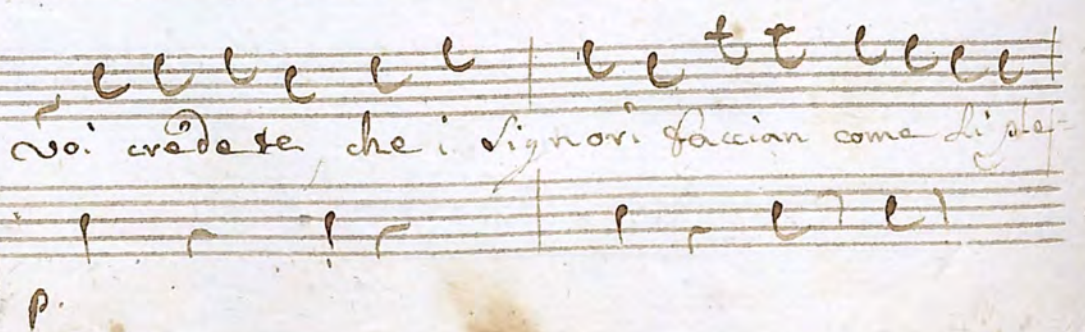 voi credete che i signori faccian come di ple-
p.